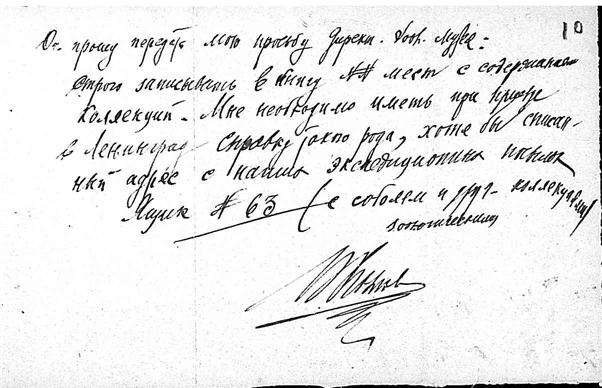 10
прошу передать мою просьбу Дирекц. Зоол. Музея:
строго записывать в книгу №№ мест с содержанием
коллекций. Мне необходимо иметь при
в Ленинград справку рода, хотя бы списан-
ный адрес с наших экспедиционных
Ящик № 63 (с соболем и друг. коллекциями
зоологическими